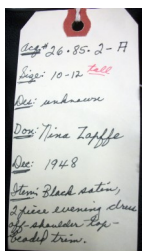 Acq# 26-85-2-A
Size: 10-12 tall
Des: unknown
Don: Nina Zapffe
Dec: 1948
Item: Black satin,
2 piece evening dress
off-shoulder top-
beaded trim.